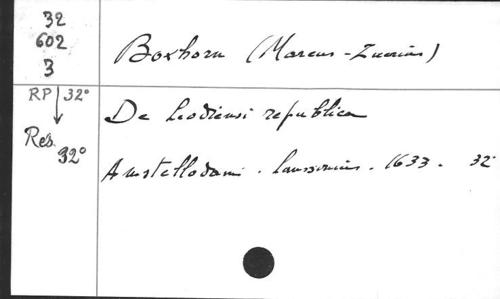 32
602
3
Boxhorn (Marcus-Zuerius)
RP 32°
Res. 32°
De Leodiensi republica
Amstellodami. Janssonius. 1633. 32°